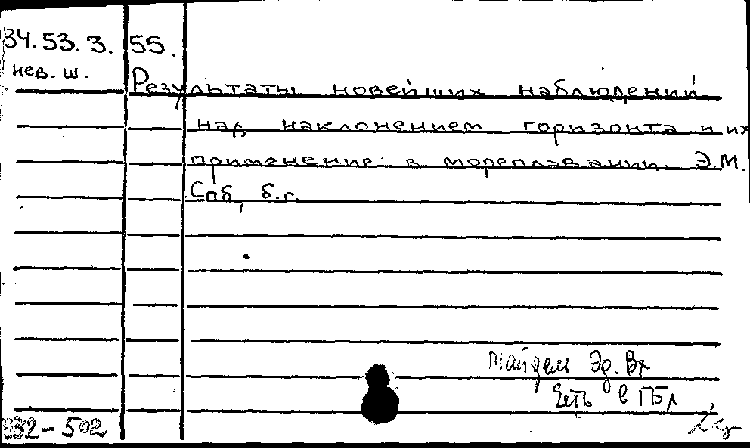 34.53.3. 55.
нев. ш.
Результаты новейших наблюдений
над наклонением горизонта и их
применение в мореплавании. Э.М.
Спб, б.г.
Майдель Эд. Вх
Есть в ПБл
332-502